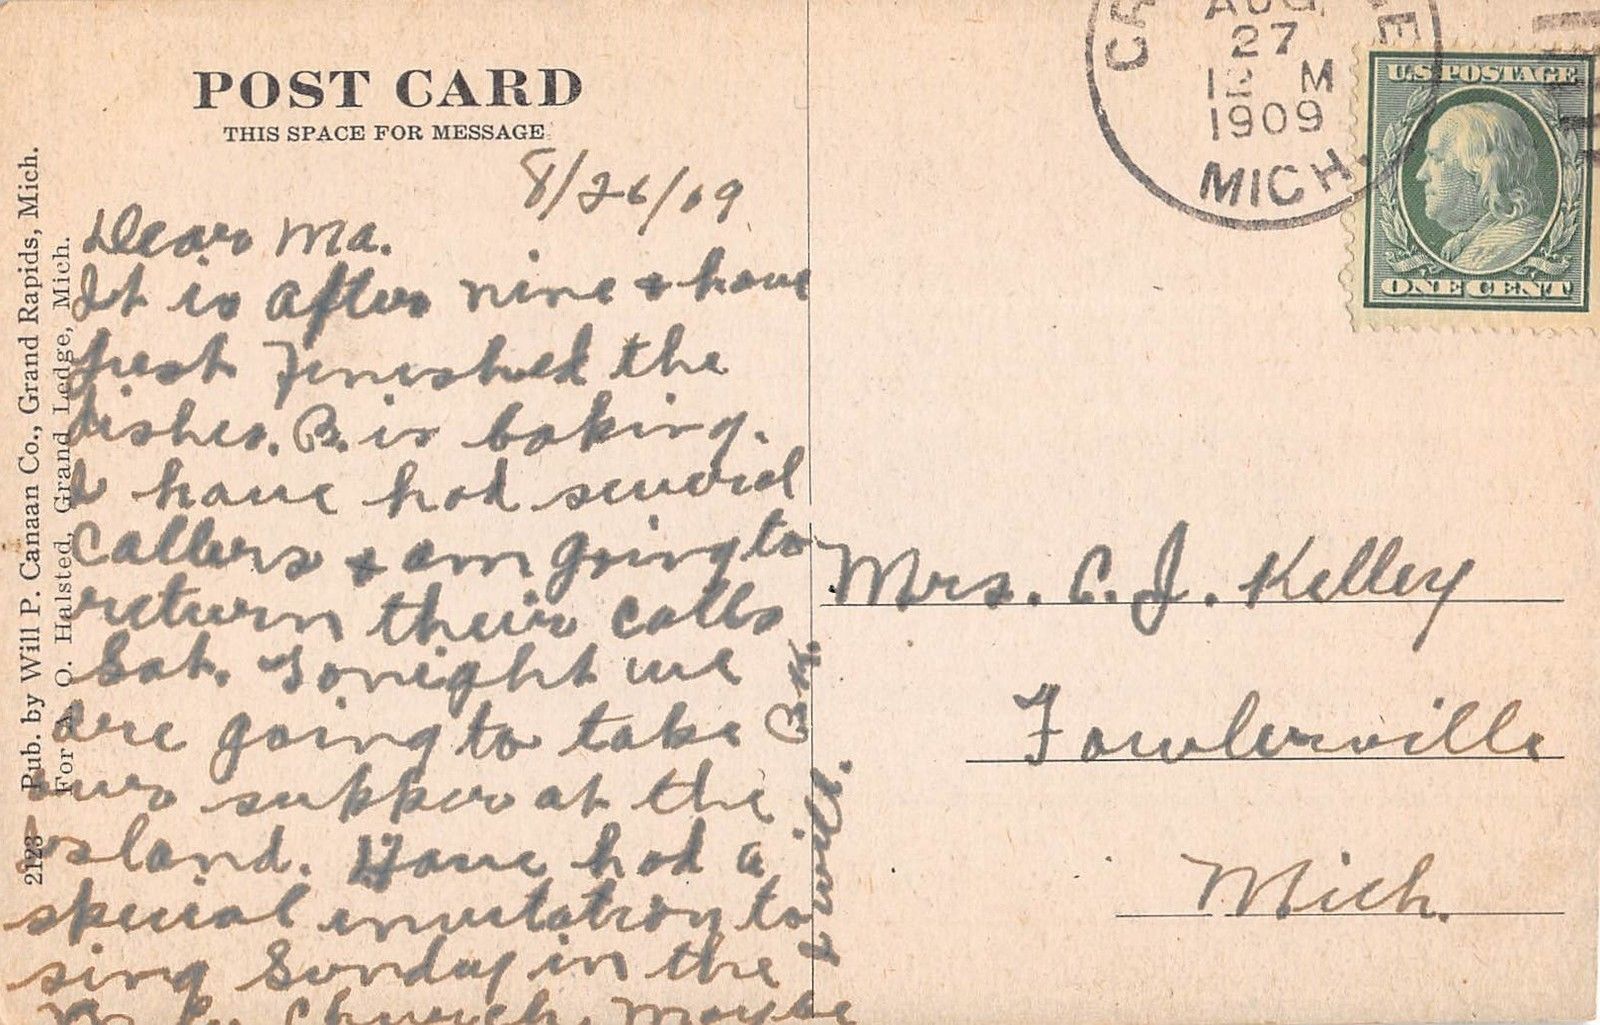 POST CARD
THIS SPACE FOR MESSAGE
8/26/09
Dear Ma.
It is after nine & have
just finished the
dishes. B. is baking.
I have had several
callers & am going to
return their calls
Sat. Tonight we
are going to take
our supper at the
island. Have had a
special invitation to
sing Sunday in the
Church. Maybe
I will.
2123 Pub. by Will P. Canaan Co., Grand Rapids, Mich.
For A. O. Halsted, Grand Ledge, Mich.
AUG
27
12 M
1909
MICH.
U.S. POSTAGE
ONE CENT
Mrs. C. J. Kelley
Fowlerville
Mich.